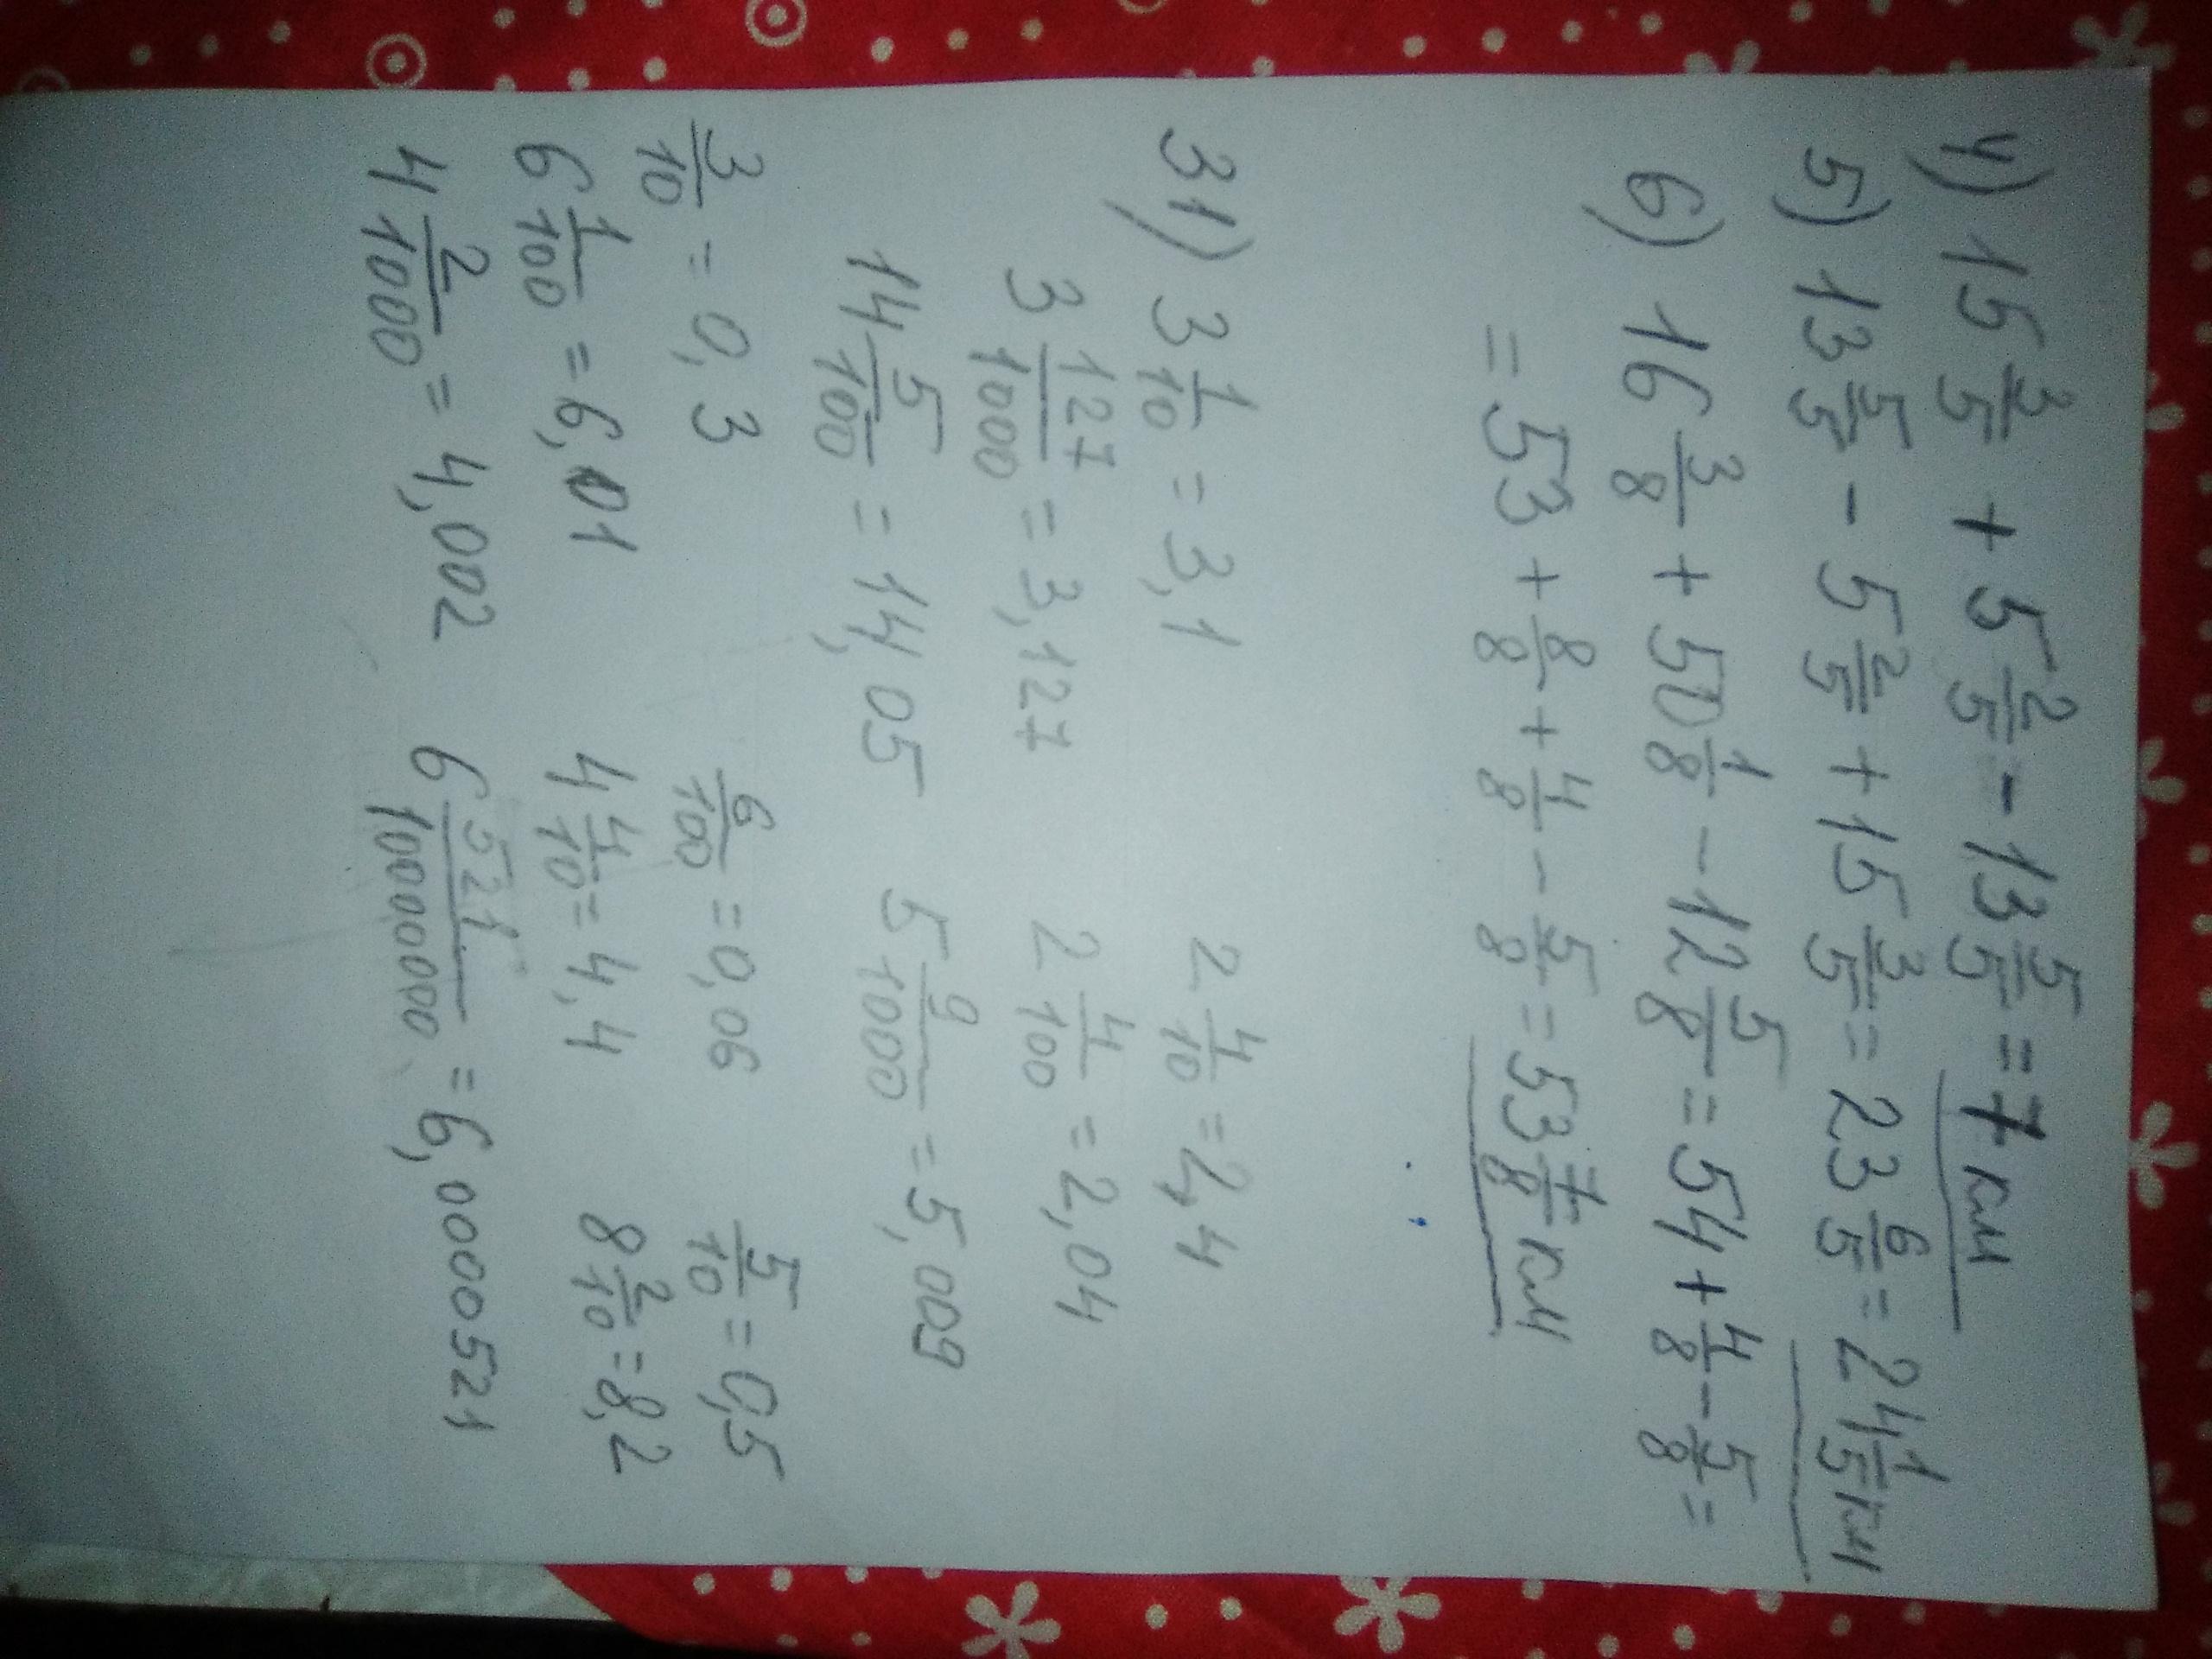 4) 15 3/5 + 5 2/5 - 13 5/5 = 7 км
5) 13 5/5 - 5 2/5 + 15 3/5 = 23 6/5 = 24 1/5 км
6) 16 3/8 + 50 1/8 - 12 5/8 = 54 + 4/8 - 5/8 =
= 53 + 8/8 + 4/8 - 5/8 = 53 7/8 км
31) 3 1/10 = 3,1 2 4/10 = 2,4
3 127/1000 = 3,127 2 4/100 = 2,04
14 5/100 = 14,05 5 9/1000 = 5,009
3/10 = 0,3 6/100 = 0,06 5/10 = 0,5
6 1/100 = 6,01 4 4/10 = 4,4 8 2/10 = 8,2
4 2/1000 = 4,002 6 521/10000000 = 6,0000521